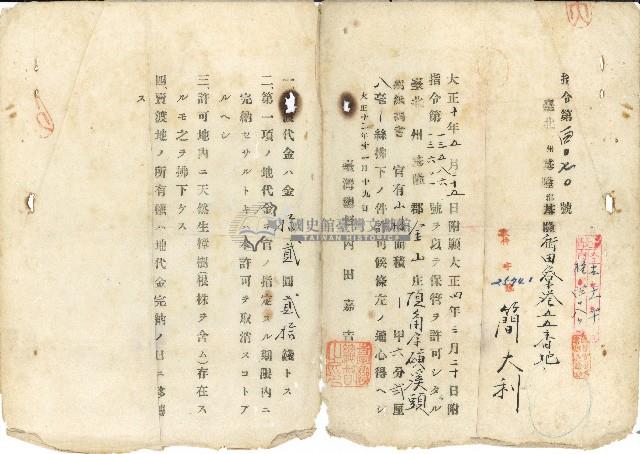 指令第 號
臺北州基隆郡基隆街田寮港五五番地
簡大利
大正十年五月十五日附願大正四年三月二十日附
指令第 號ヲ以テ保管ヲ許可シタル
臺北州基隆郡金山庄頂角字礦溪頭
官有 面積一甲六分弐厘
八毫一絲拂下ノ件許可候條左ノ通心得ヘシ
大正十二年十一月十九日
臺灣總督內田嘉吉
國史館臺灣文獻館
TAIWAN HISTORICA
一、 渡代金ハ金 貳圓貳拾 錢トス
二、第一項ノ地代金 官ノ指定スル期限內ニ
完納セサルトキハ本許可ヲ取消スコトア
ルヘシ
三、許可地內ニ天然生樟樹(根株ヲ含ム)存在ス
ルモ之ヲ拂下ケス
四、賣渡地ノ所有權ハ地代金完納ノ日ニ移轉
ス